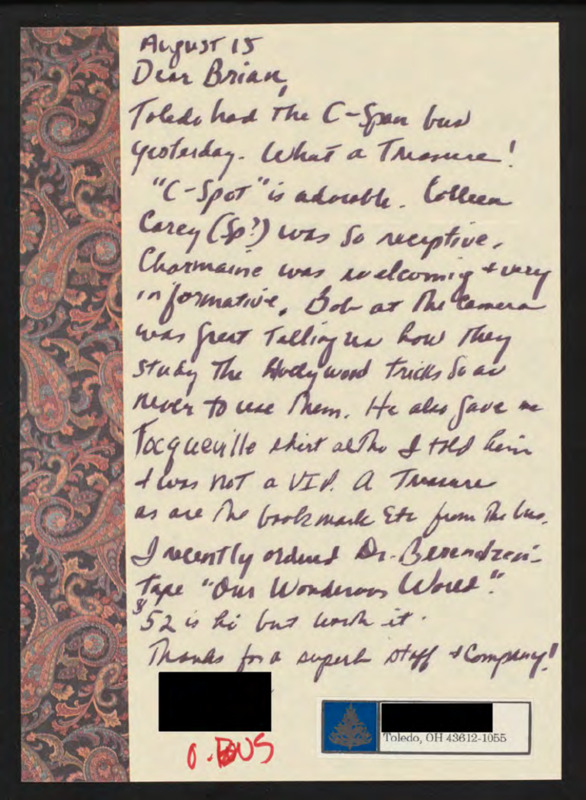 August 15
Dear Brian,
Toledo had the C-Span bus
yesterday. What a Treasure!
"C-Spot" is adorable. Colleen
Carey (Sp?) was so receptive.
Charmaine was welcoming + very
informative. Bob at the Camera
was great telling us how they
study the Hollywood tricks so as
never to use them. He also gave me
Tocqueville shirt altho I told him
I was not a VIP. A Treasure
as are the bookmark Etc from the bus.
I recently ordered Dr. Berendzen
tape "Our Wonderous World".
$52 is hi but worth it.
Thanks for a superb staff + Company!
O. BUS
Toledo, OH 43612-1055